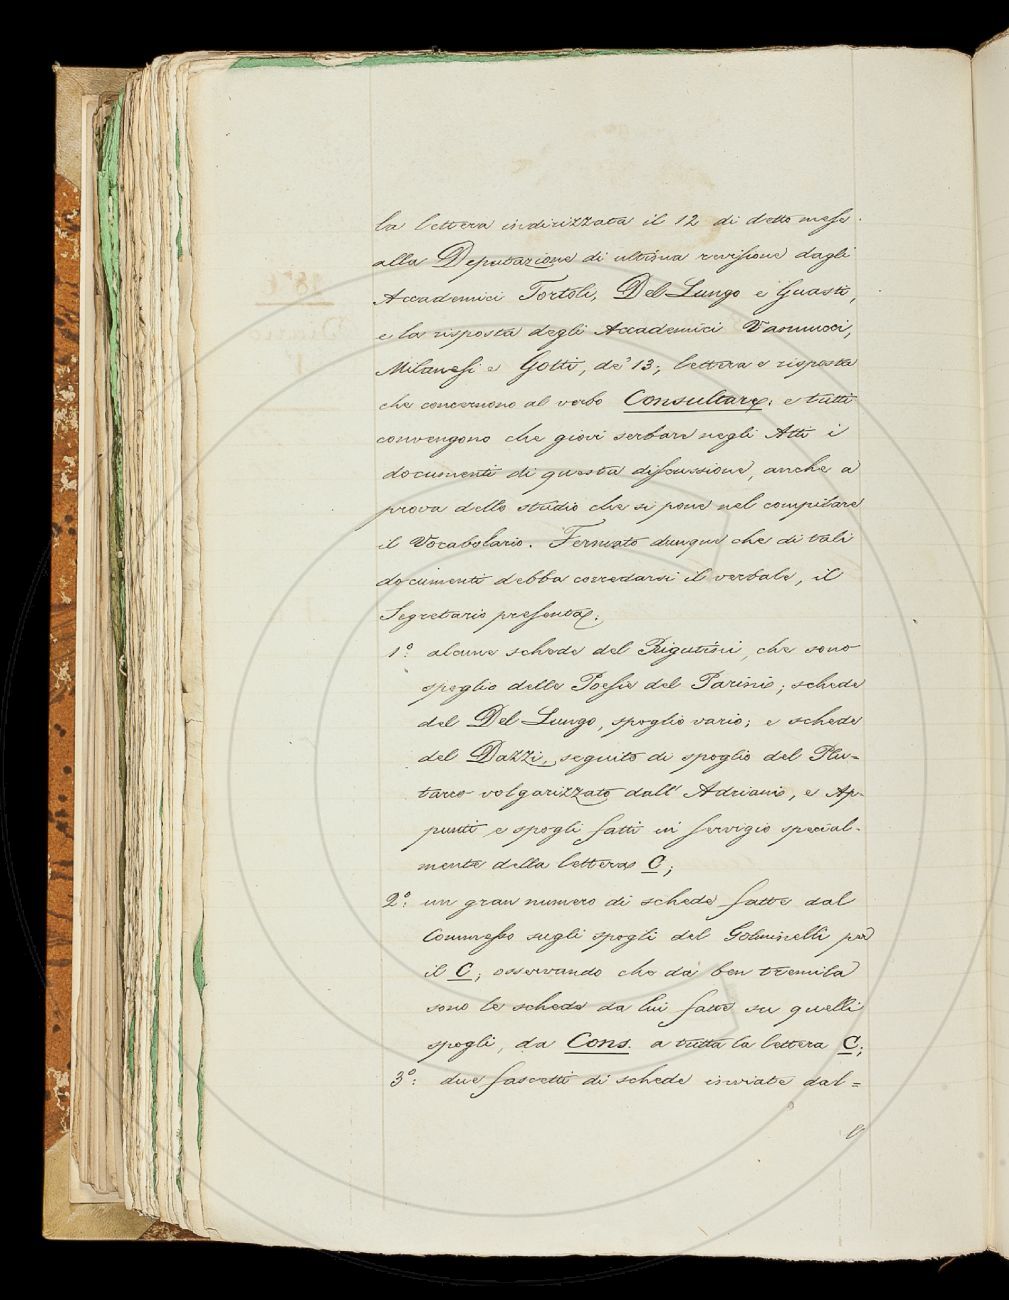 la lettera indirizzata il 12 di detto mese
alla Deputazione di ultima revisione dagli
Accademici Tortoli, Del Lungo e Guasti,
e la risposta degli Accademici Vannucci,
Milanesi e Gotti, de' 13; lettera e risposta
che concernono al verbo Consultare; e tutti
convengono che giovi serbare negli Atti i
documenti di questa discussione, anche a
prova dello studio che si pone nel compilare
il Vocabolario. Fermato dunque che di tali
documenti debba corredarsi il verbale, il
Segretario presenta.
1º. alcune schede del Rigutini, che sono
spoglio delle Poesie del Parini; schede
del Del Lungo, spoglio vario; e schede
del Dazzi, seguito di spoglio del Plu=
tarco volgarizzato dall' Adriani, e Ap-
punti e spogli fatti in servigio special-
mente della lettera C;
2º: un gran numero di schede fatte dal
Commesso sugli spogli del Golminelli per
il C; osservando che da ben tremila
sono le schede da lui fatte su quelli
spogli, da Cons. a tutta la lettera C;
3º: due fascetti di schede inviate dal=
l'